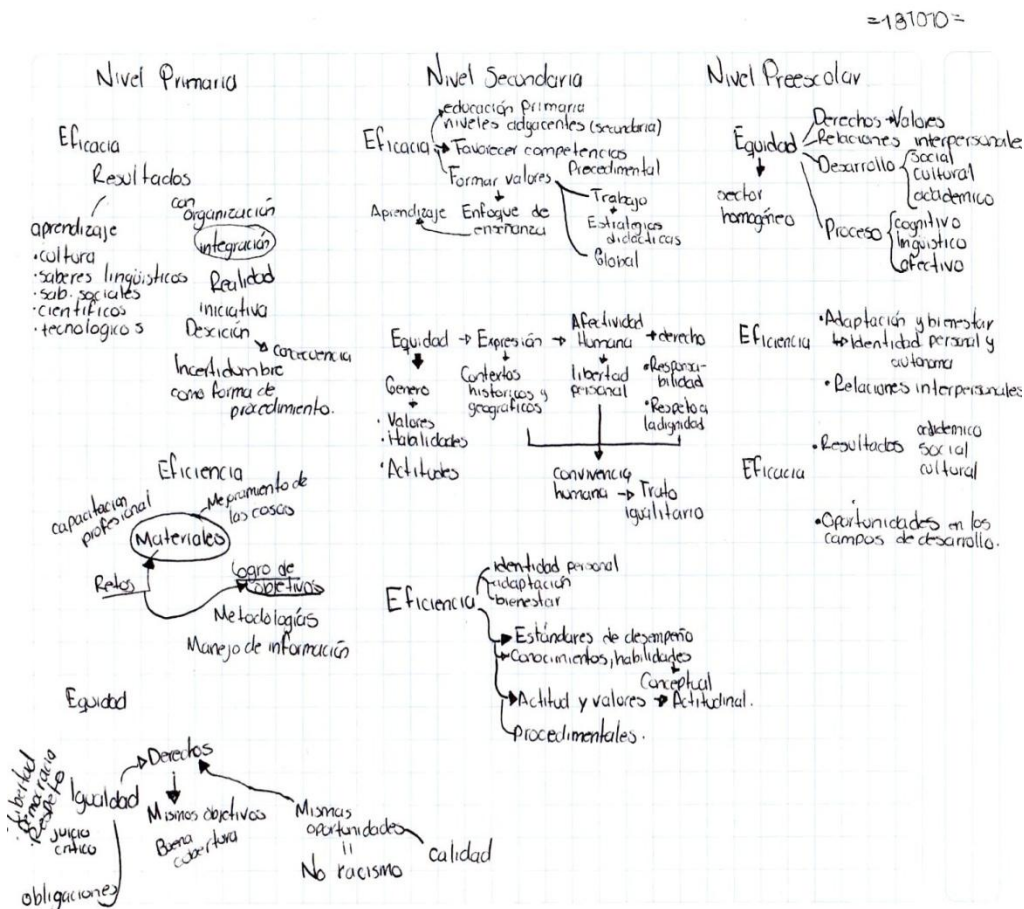 =131010=
Nivel Primaria
Eficacia
Resultados
con
organización
aprendizaje
integración
•cultura
•saberes lingüisticos
•sab. sociales
•cientificos
•tecnologicos
Realidad
iniciativa
Desición
Incertidumbre
como forma de
procedimiento.
Eficiencia
capacitacion
profesional
las cosas
Materiales
Retos
Logro de
objetivos
Metodologías
Manejo de información
Equidad
•Libertad
Democracia
•Respeto
Igualdad
juicio
critico
obligaciones
Derechos
Mismos objetivos
Buena
cobertura
Mismas
oportunidades
=
No racismo
calidad
Nivel Secundaria
Eficacia
educación Primaria
niveles adyacentes (secundaria)
Favorecer competencias
Procedimental
Formar valores
Aprendizaje
Enfoque de
enseñanza
Trabajo
Estrategias
didácticas
Global
Equidad → Expresión →
Afectividad
Humana → derecho
Genero
• Valores
•Habilidades
•Actitudes
Contextos
historicos y
geograficos
libertad
personal
•Responsa-
bilidad
•Respeto a
la dignidad
convivencia
humana → Trato
igualitario
Eficiencia
identidad personal
adaptación
bienestar
Estándares de desempeño
Conocimientos, habilidades
Conceptual
Actitud y valores → Actitudinal.
Procedimentales.
Nivel Preescolar
Equidad
Derechos → Valores
Relaciones interpersonales
Desarrollo
social
cultural
academico
sector
homogéneo
Proceso
cognitivo
lingüistico
afectivo
Eficiencia
•Adaptación y bienestar
↳ Identidad personal y
autonoma
•Relaciones interpersonales
Eficacia
•Resultados
academico
social
cultural
•Oportunidades en los
campos de desarrollo.